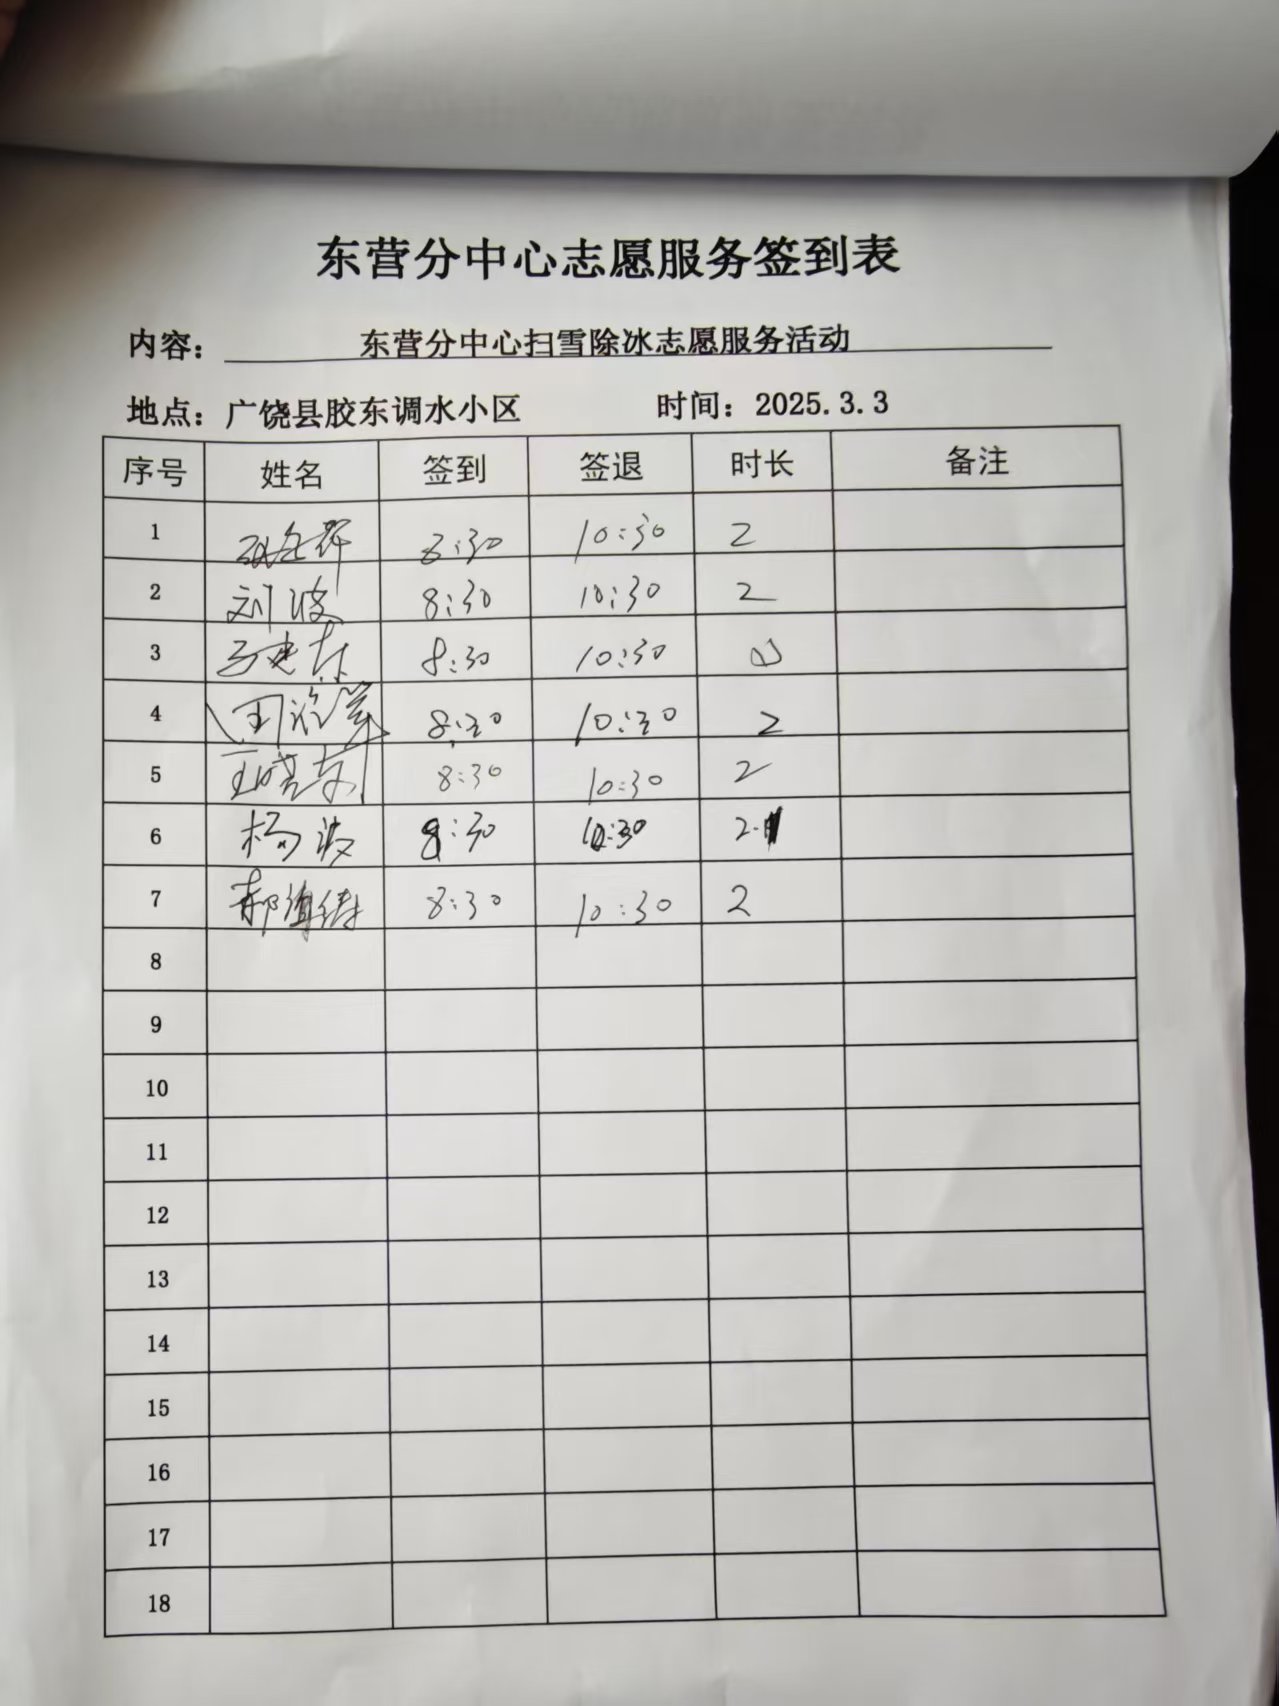 东营分中心志愿服务签到表
内容： 东营分中心扫雪除冰志愿服务活动
地点：广饶县胶东调水小区 时间：2025.3.3
序号 姓名 签到 签退 时长 备注
1 8:30 10:30 2
2 刘波 8:30 10:30 2
3 8:30 10:30
4 8:30 10:30 2
5 8:30 10:30 2
6 杨波 8:30 10:30 2
7 郝海涛 8:30 10:30 2
8
9
10
11
12
13
14
15
16
17
18